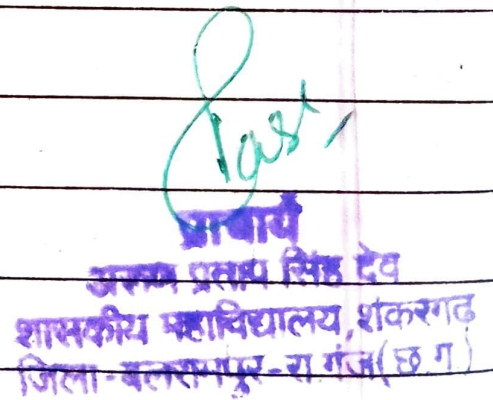 प्राचार्य
अरूण प्रताप सिंह देव
शासकीय महाविद्यालय, शंकरगढ़
जिला-बलरामपुर-रा.गंज(छ.ग.)